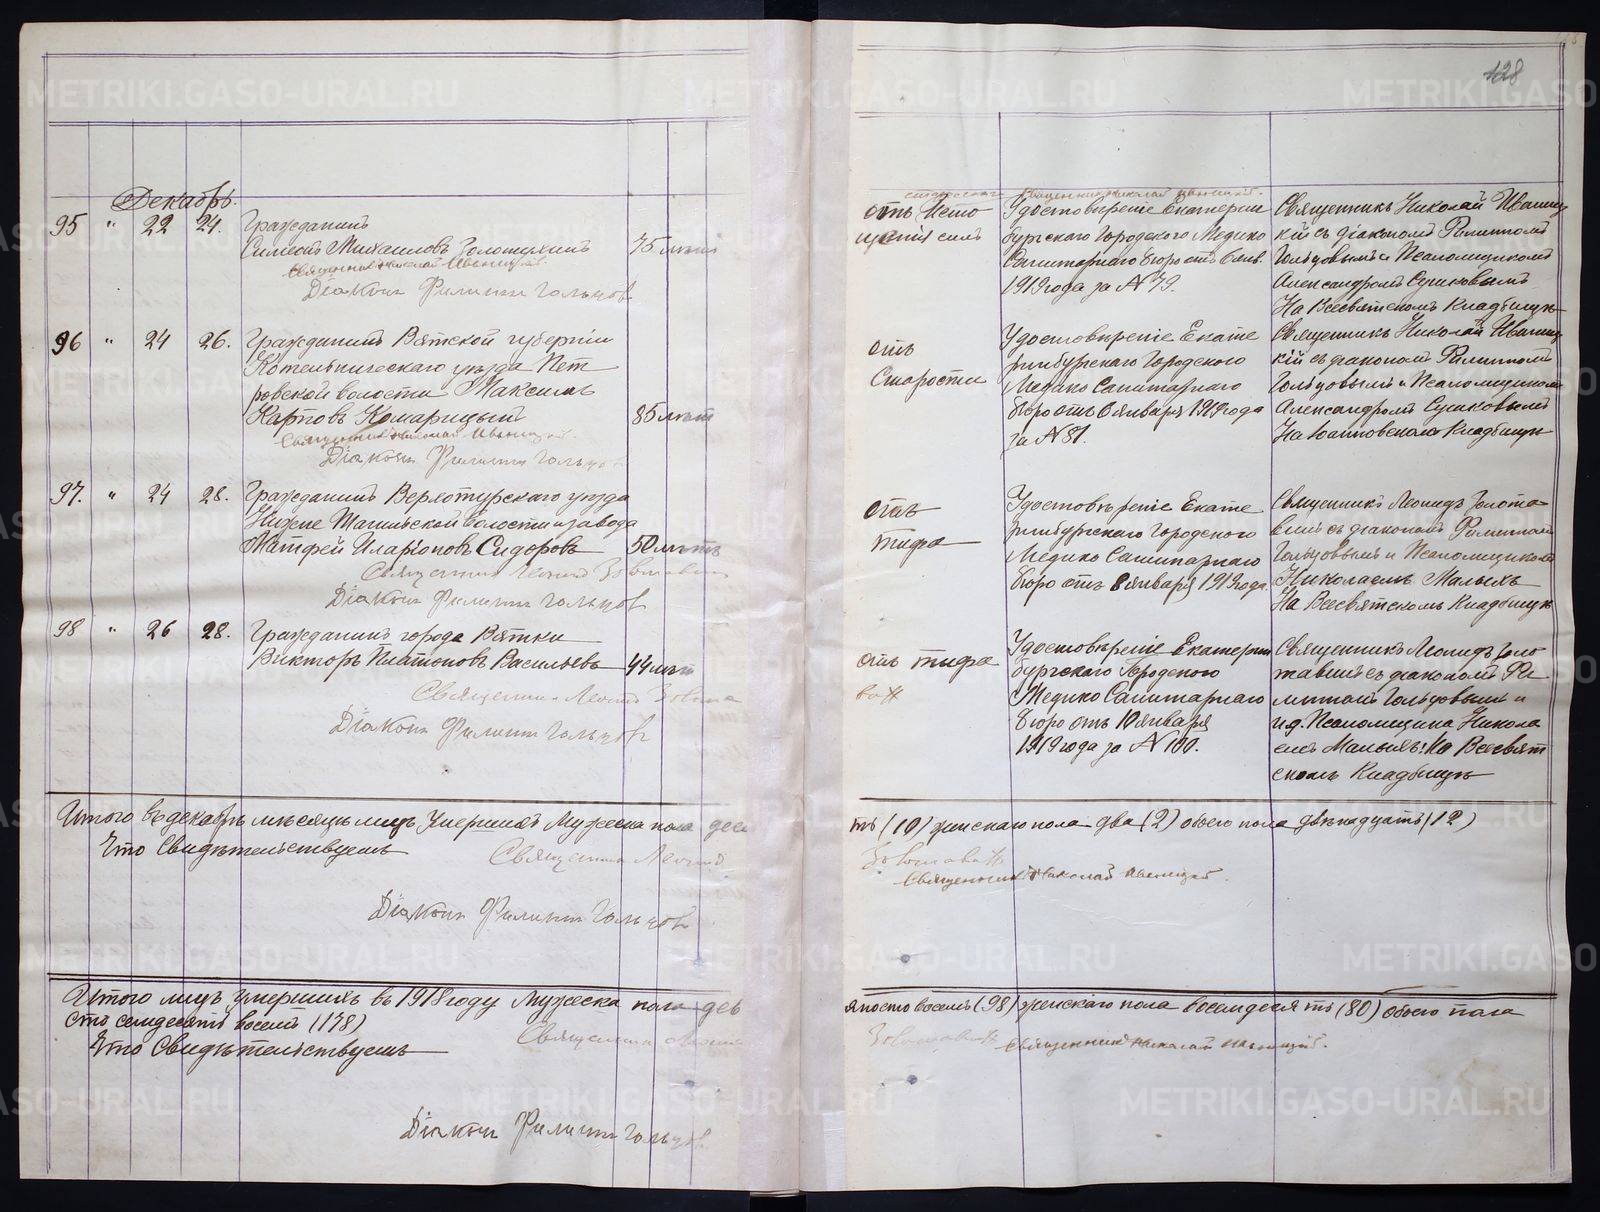 428
Декабрь.
95 " 22 24. Гражданинъ
Симеонъ Михаиловъ Голотухинъ 75 лѣтъ
Священникъ Николай Иваницкій.
Діаконъ Филиппъ Гальцовъ
отъ Исто
щенія силъ
Удостовѣреніе Екатерин
бургскаго Городского Медико
Санитарнаго бюро отъ 6 янв.
1919 года за № 79.
Священникъ Николай Иваниц
кій съ діакономъ Филиппомъ
Гальцовымъ и Псаломщикомъ
Александромъ Сушковымъ
На Всесвятскомъ Кладбищѣ
96 " 24 26. Гражданинъ Вятской губерніи
Котельническаго уѣзда Пет
ровской волости Максимъ
Карповъ Комарицынъ 85 лѣтъ
Священникъ Николай Иваницкій.
Діаконъ Филиппъ Гальцовъ
отъ
Старости
Удостовѣреніе Екате
ринбургскаго Городского
Медико Санитарнаго
бюро отъ 6 января 1919 года
за № 81.
Священникъ Николай Иваниц
кій съ діакономъ Филиппомъ
Гальцовымъ и Псаломщикомъ
Александромъ Сушковымъ
На Іоанновскомъ Кладбищѣ
97. " 24 28. Гражданинъ Верхотурскаго уѣзда
Нижне Тагильской волости и завода
Матфей Иларіоновъ Сидоровъ 50 лѣтъ
Священникъ Леонидъ
Діаконъ Филиппъ Гальцовъ
отъ
тифа
Удостовѣреніе Екате
ринбургскаго Городского
Медико Санитарнаго
бюро отъ 8 января 1919 года.
Священникъ Леонидъ
съ діакономъ Филиппомъ
Гальцовымъ и Псаломщикомъ
Николаемъ Малыхъ
На Всесвятскомъ Кладбищѣ
98 " 26 28. Гражданинъ города Вятки
Викторъ Платоновъ Васильевъ 44 лѣтъ
Священникъ Леонидъ
Діаконъ Филиппъ Гальцовъ
отъ тифа
Удостовѣреніе Екатерин
бургскаго Городского
Медико Санитарнаго
бюро отъ 10 января
1919 года за № 100.
Священникъ Леонидъ
съ діакономъ Фи
липпомъ Гальцовымъ и
и.д. Псаломщика Никола
емъ Малыхъ. На Всесвят
скомъ Кладбищѣ
Итого въ декабрѣ мѣсяцѣ лицъ Умершихъ Мужеска пола деся
тъ (10) женскаго пола два (2) обоего пола двѣнадцать (12)
Что Свидѣтельствуемъ Священникъ Леонидъ
Священникъ Николай Иваницкій.
Діаконъ Филиппъ Гальцовъ
Итого лицъ умершихъ въ 1918 году Мужеска пола дев
яносто восемь (98) женскаго пола восемдесятъ (80) обоего пола
сто семдесятъ восемь (178)
Что Свидѣтельствуемъ Священникъ Леонидъ
Священникъ Николай Иваницкій.
Діаконъ Филиппъ Гальцовъ
METRIKI.GASO-URAL.RU